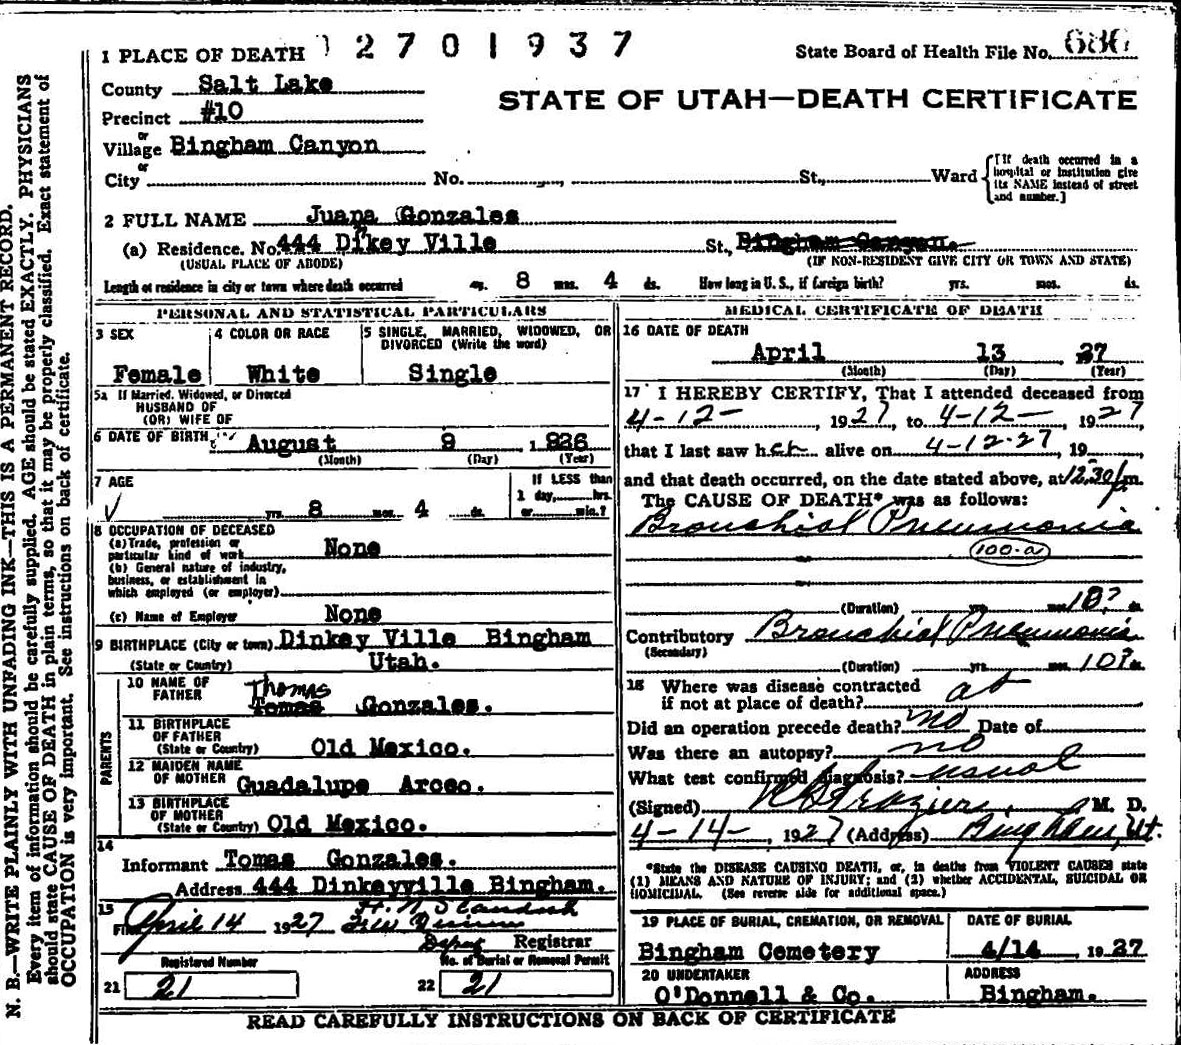 1 PLACE OF DEATH 12701937 State Board of Health File No. 686
County Salt Lake
STATE OF UTAH—DEATH CERTIFICATE
Precinct #10
or
Village Bingham Canyon
or
City No. St., Ward {[If death occurred in a hospital or institution give its NAME instead of street and number.]
2 FULL NAME Juana Gonzales
(a) Residence. No. 444 Dikey Ville St., Bingham Canyon.
(USUAL PLACE OF ABODE) (IF NON-RESIDENT GIVE CITY OR TOWN AND STATE)
Length of residence in city or town where death occurred ys. 8 mos. 4 ds. How long in U. S., if foreign birth? yrs. mos. ds.
PERSONAL AND STATISTICAL PARTICULARS
3 SEX 4 COLOR OR RACE 5 SINGLE, MARRIED, WIDOWED, OR
DIVORCED (Write the word)
Female White Single
5a If Married, Widowed, or Divorced
HUSBAND OF
(OR) WIFE OF
6 DATE OF BIRTH August 9 1926
(Month) (Day) (Year)
7 AGE If LESS than
1 day, hrs.
yrs. 8 mos. 4 ds. or min.?
8 OCCUPATION OF DECEASED
(a) Trade, profession or
particular kind of work None
(b) General nature of industry,
business, or establishment in
which employed (or employer)
(c) Name of Employer None
9 BIRTHPLACE (City or town) Dinkey Ville Bingham
(State or Country) Utah.
PARENTS
10 NAME OF Thomas
FATHER Tomas Gonzales.
11 BIRTHPLACE
OF FATHER
(State or Country) Old Mexico.
12 MAIDEN NAME
OF MOTHER Guadalupe Arceo.
13 BIRTHPLACE
OF MOTHER
(State or Country) Old Mexico.
14
Informant Tomas Gonzales.
Address 444 Dinkeyville Bingham.
15
April 14 1927
Registrar
Registered Number No. of Burial or Removal Permit
21 21 22 21
MEDICAL CERTIFICATE OF DEATH
16 DATE OF DEATH
April 13 27
(Month) (Day) (Year)
17 I HEREBY CERTIFY, That I attended deceased from
4-12- 1927, to 4-12- , 1927
that I last saw her alive on 4-12-27, 19
and that death occurred, on the date stated above, at 12,30 p.m.
The CAUSE OF DEATH* was as follows:
Bronchial Pneumonia
100-a
(Duration) yrs. mos. 10? ds.
Contributory Bronchial Pneumonia
(Secondary)
(Duration) yrs. mos. 10? ds.
18 Where was disease contracted
if not at place of death? at
Did an operation precede death? no Date of
Was there an autopsy? no
What test confirmed diagnosis? usual
(Signed) Frazier, M. D.
4-14- , 1927 (Address) Bingham, Ut.
*State the DISEASE CAUSING DEATH, or, in deaths from VIOLENT CAUSES state
(1) MEANS AND NATURE OF INJURY; and (2) whether ACCIDENTAL, SUICIDAL OR
HOMICIDAL. (See reverse side for additional space.)
19 PLACE OF BURIAL, CREMATION, OR REMOVAL DATE OF BURIAL
Bingham Cemetery 4/14 , 1927
20 UNDERTAKER ADDRESS
O'Donnell & Co. Bingham.
READ CAREFULLY INSTRUCTIONS ON BACK OF CERTIFICATE
N. B.—WRITE PLAINLY WITH UNFADING INK—THIS IS A PERMANENT RECORD.
Every item of information should be carefully supplied. AGE should be stated EXACTLY. PHYSICIANS
should state CAUSE OF DEATH in plain terms, so that it may be properly classified. Exact statement of
OCCUPATION is very important. See instructions on back of certificate.